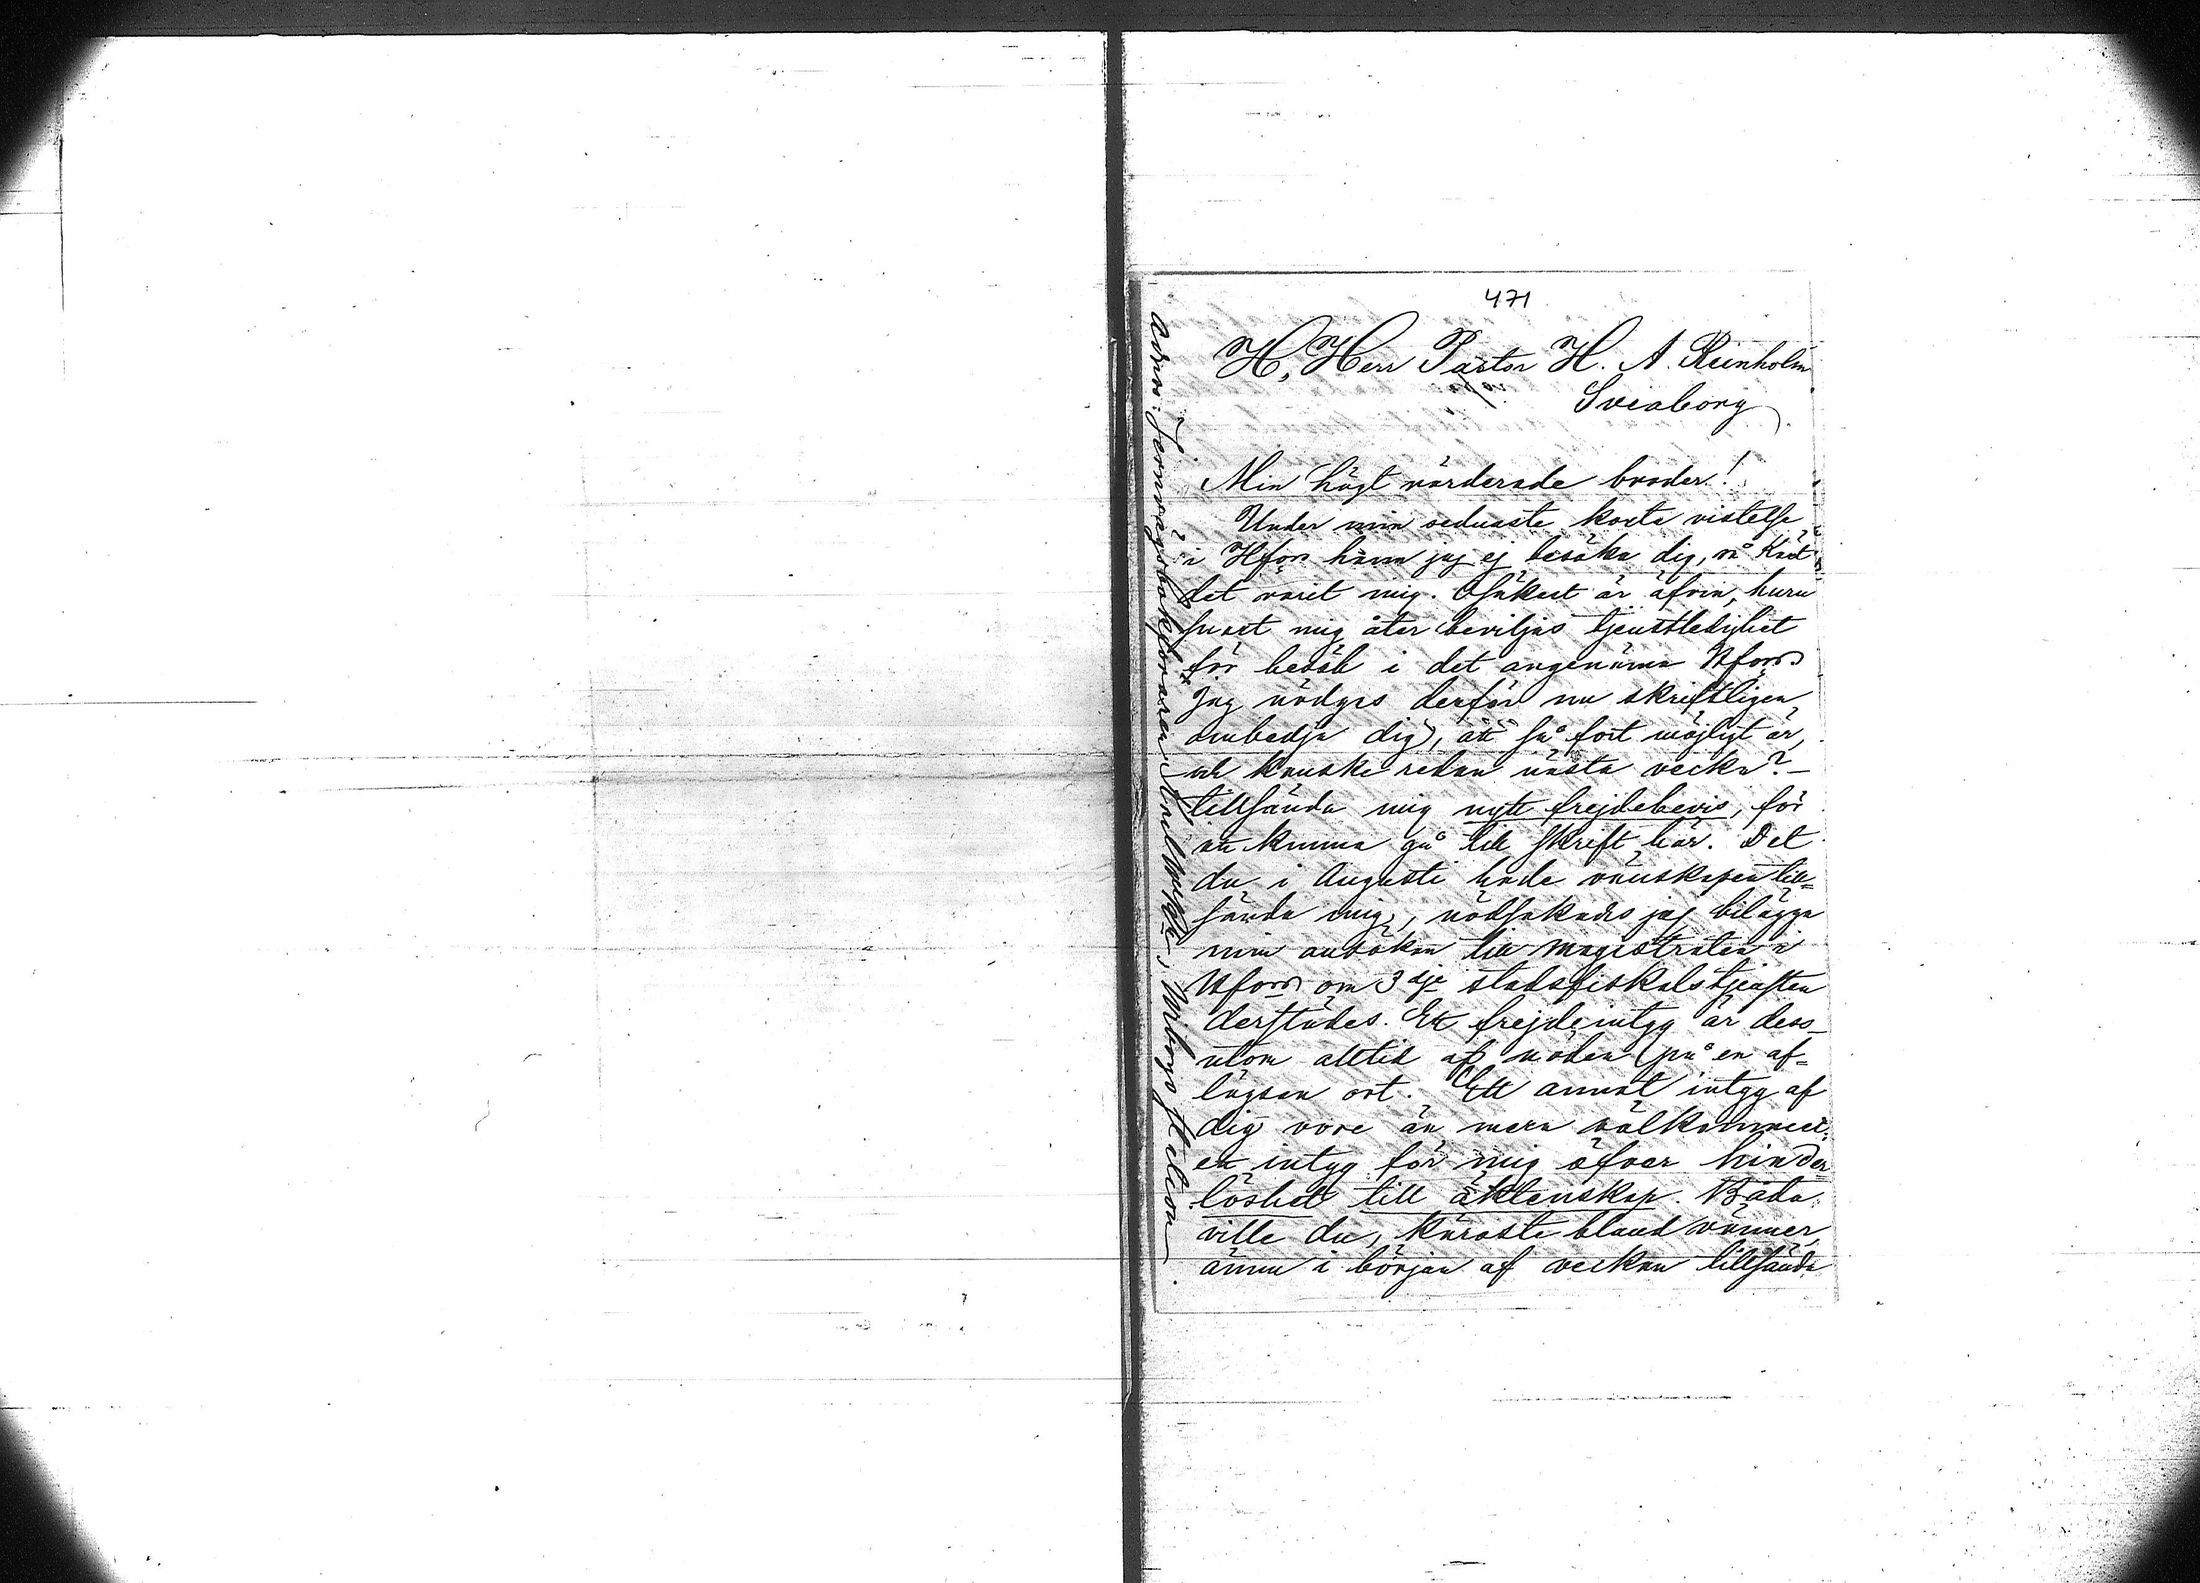 471
H. Herr Pastor H. A. Reinholm
Sveaborg
Min högt värderade broder!
Under min sednaste korta vistelse
i Hfors hann jag ej besöka dig, så kärt
det varit mig. Osäkert är äfven, huru
snart mig åter beviljas tjenstledighet
för besök i det angenäma Hfors.
Jag nödgas derför nu skriftligen
anbedja dig, att så fort möjligt är,
och kanske redan nästa vecka? –
tillsända mig nytt frejdebevis, för
att kunna gå till skrift här. Det
du i Augusti hade vänskapen till=
sända mig, nödsakades jag bilägga
min ansökan till magistraten i
Hfors om 3dje stadsfiskalstjensten
derstädes. Ett frejdeintyg är dess–
utom alltid af nöden på en af=
lägsen ort. Ett annat intyg af
dig vore än mera välkommet:
ett intyg för mig öfver hinder
löshet till äktenskap. Båda
ville du, käraste bland vänner,
ännu i början af veckan tillsända
adress: Jernvägsbokföraren, Wiborgs station.